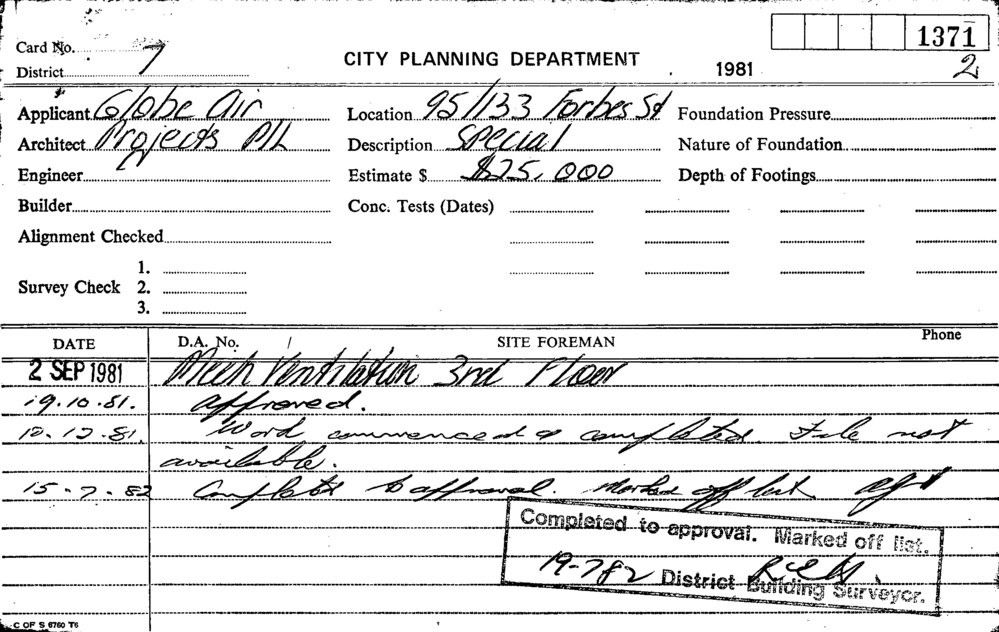 Card No. 1371
District 7 CITY PLANNING DEPARTMENT 1981 2
Applicant Globe Air Location 95/133 Forbes St Foundation Pressure
Architect Projects P/L Description Special Nature of Foundation
Engineer Estimate $ $25,000 Depth of Footings
Builder Conc. Tests (Dates)
Alignment Checked
1.
Survey Check 2.
3.
DATE D.A. No. SITE FOREMAN Phone
2 SEP 1981 Mech Ventilation 3rd Floor
19.10.81. approved.
10.12.81. Word commenced & completed. File not
available.
15-7-82 Complete to approval. Marked off list
Completed to approval. Marked off list.
19-782 District Building Surveyor.
C OF S 6760 T6